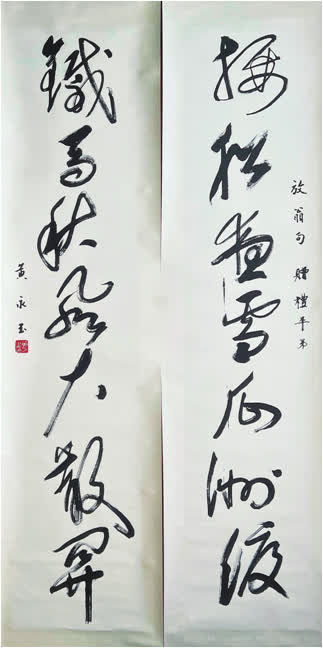 樓船夜雪瓜洲渡
放翁句 贈禮平弟
鐵馬秋風大散関
黄永玉